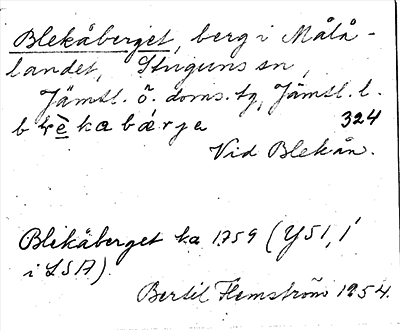 Blekåberget, berg i Målå-
landet, Stuguns sn,
Jämtl. ö. doms. tg, Jämtl. l.
bærja 324
Vid Blekån.
Blekåberget ka 1759 (YSI, 1
i LSA).
Bertil Flemström 1954.